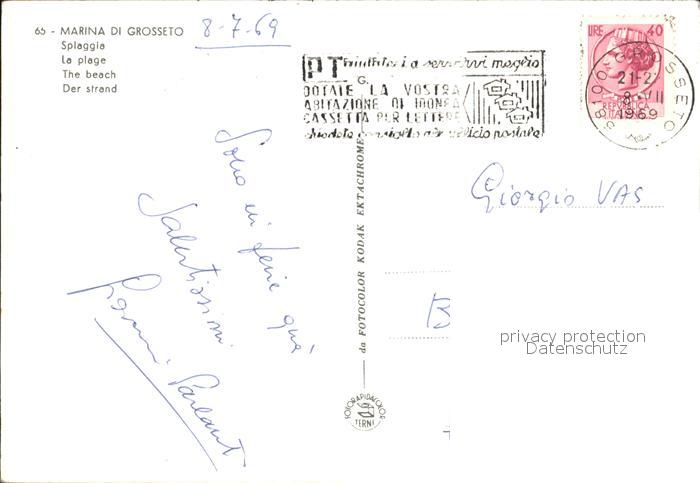 65 - MARINA DI GROSSETO
Spiaggia
La plage
The beach
Der strand
8-7-69
PT aiutateci a servirvi meglio
DOTATE LA VOSTRA
ABITAZIONE DI IDONEA
CASSETTA PER LETTERE
chiedete consiglio all'ufficio postale
LIRE 40
REPUBBLICA
ITALIANA
GROSSETO
21-2
8 VII
1969
58100
Sono in ferie quà
Salutissimi
Gianni
Giorgio VAS
B
da FOTOCOLOR KODAK EKTACHROME
FOTORAPIDACOLOR
TERNI
privacy protection
Datenschutz